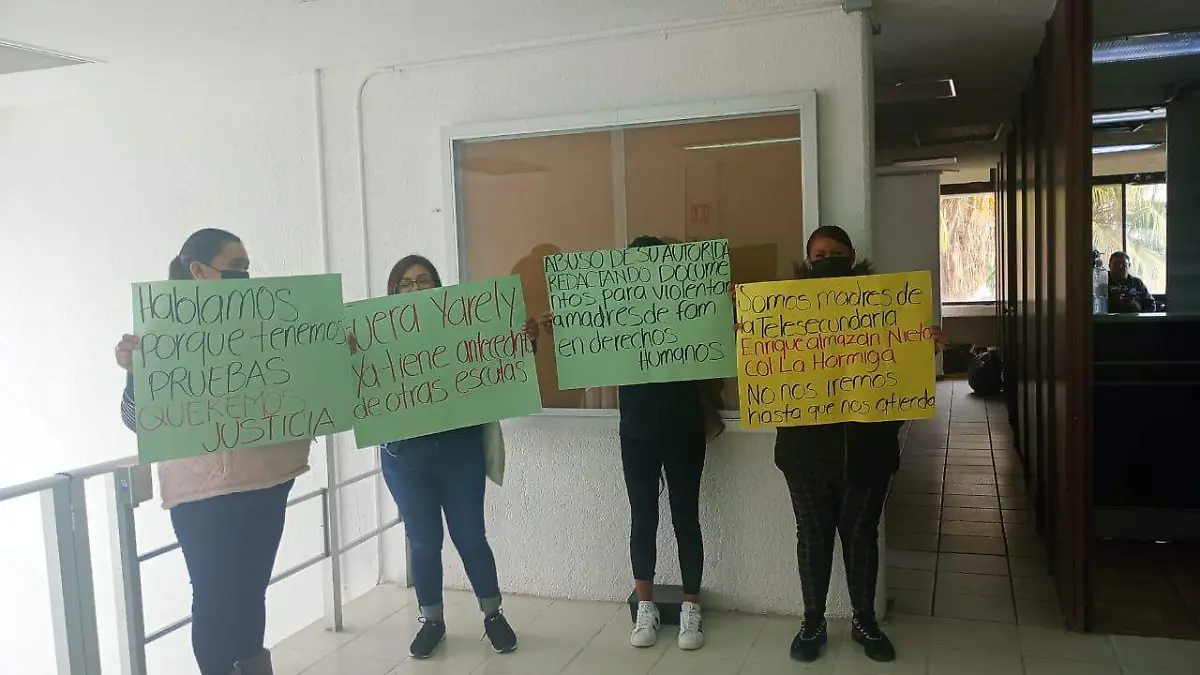 Hablamos
porque tenemos
PRUEBAS
QUEREMOS
JUSTICIA
Vera Yarely
Ya tiene antecedentes
de otras esculas
ABUSO DE SU AUTORIDA
REDACTANDO DOCUME
ntos para violentar
a madres de fam
en derechos
Humanos
Somos madres de
la Telesecundaria
Enrique almazán Nieto
col La Hormiga
No nos iremos
hasta que nos atienda